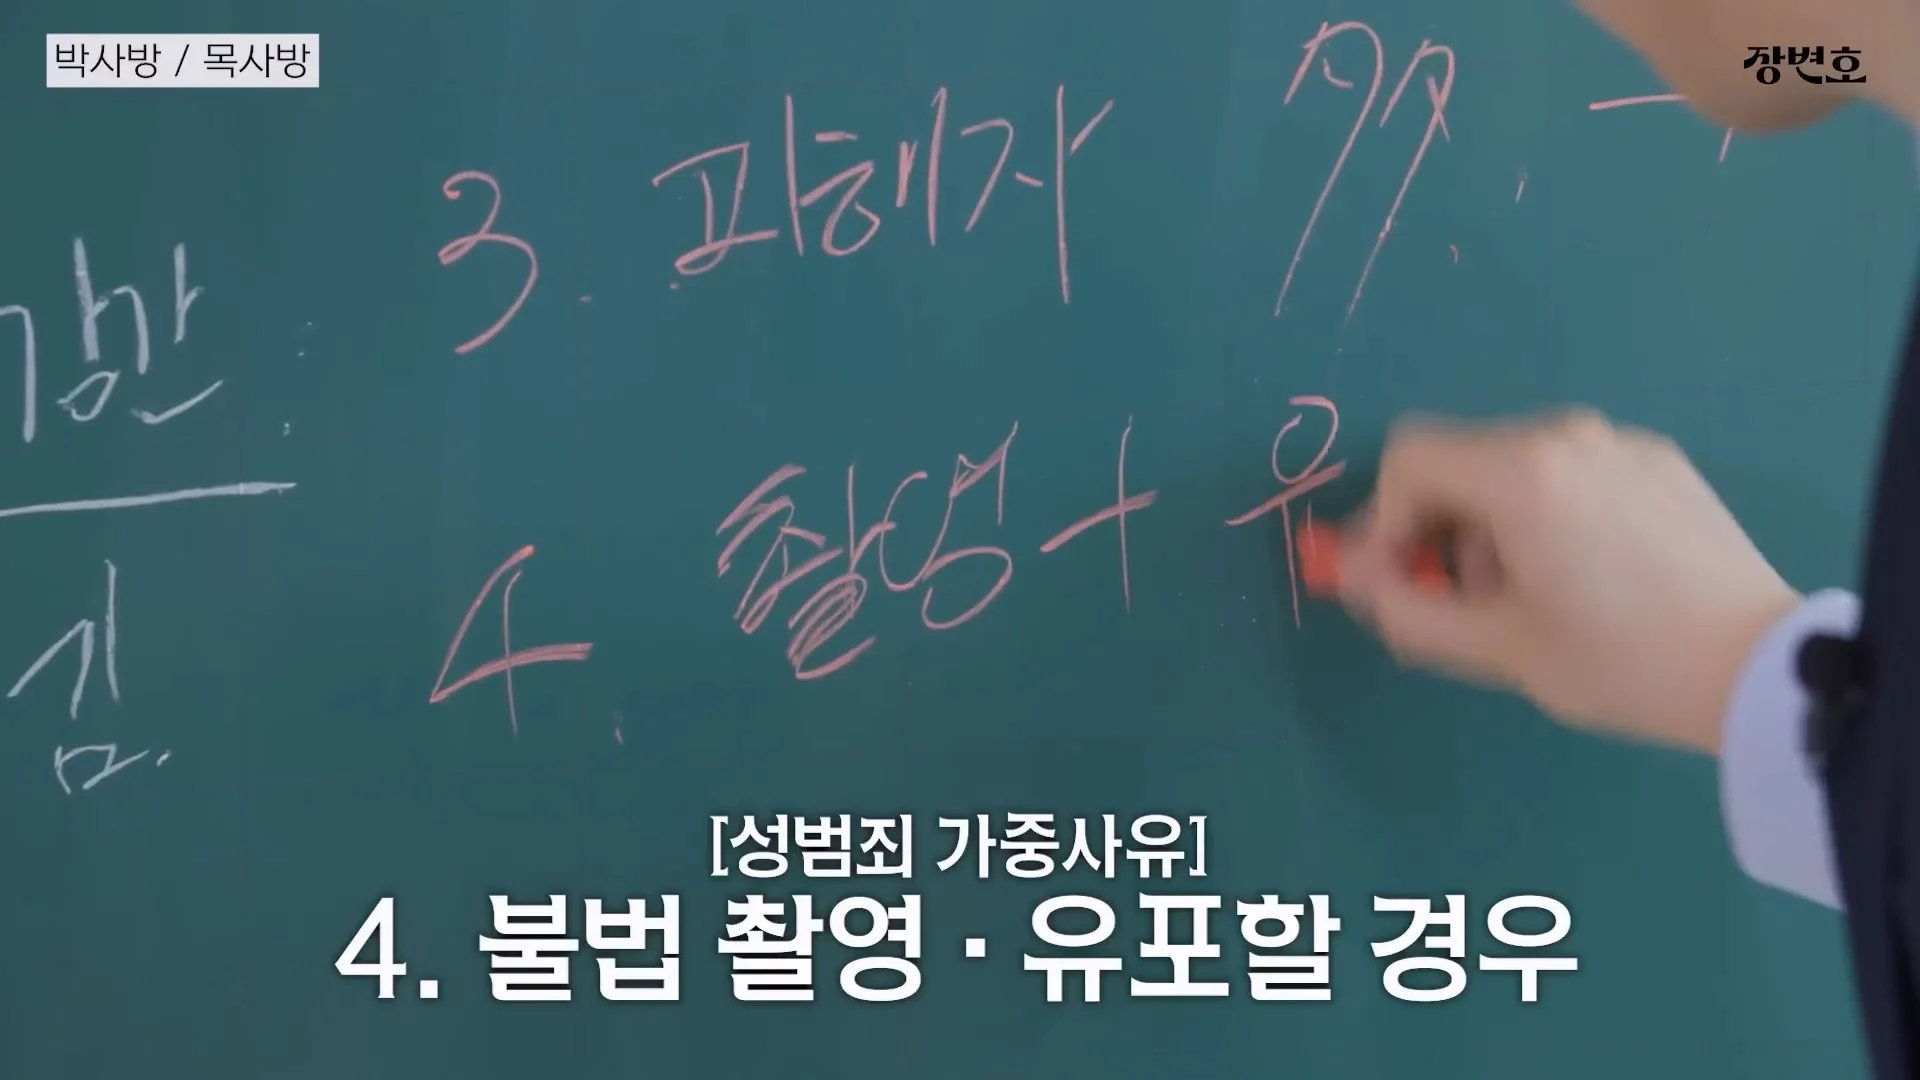 박사방 / 목사방
장변호
3. 피해자 多.
강간
심.
4. 촬영 + 유
[성범죄 가중사유]
4. 불법 촬영·유포할 경우